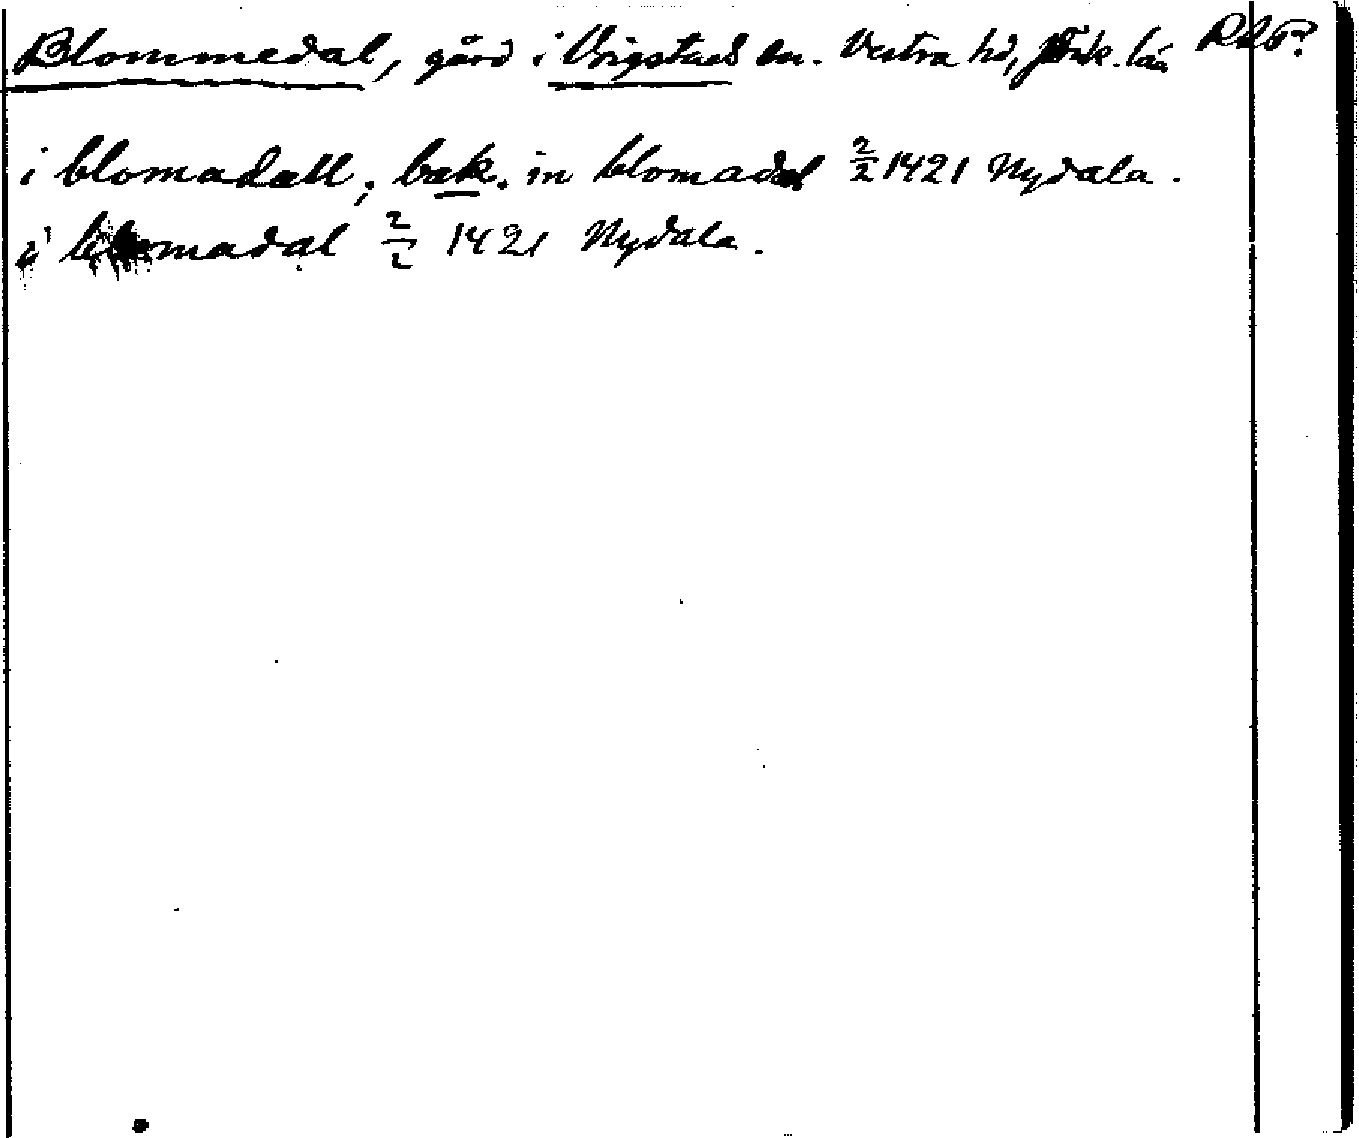 Blommedal, gård i Vrigstads sn. Västra hd, Jönk. län
i blomadall; bak. in blomadal 2/2 1421 Nydala.
i blomadal 2/2 1421 Nydala.